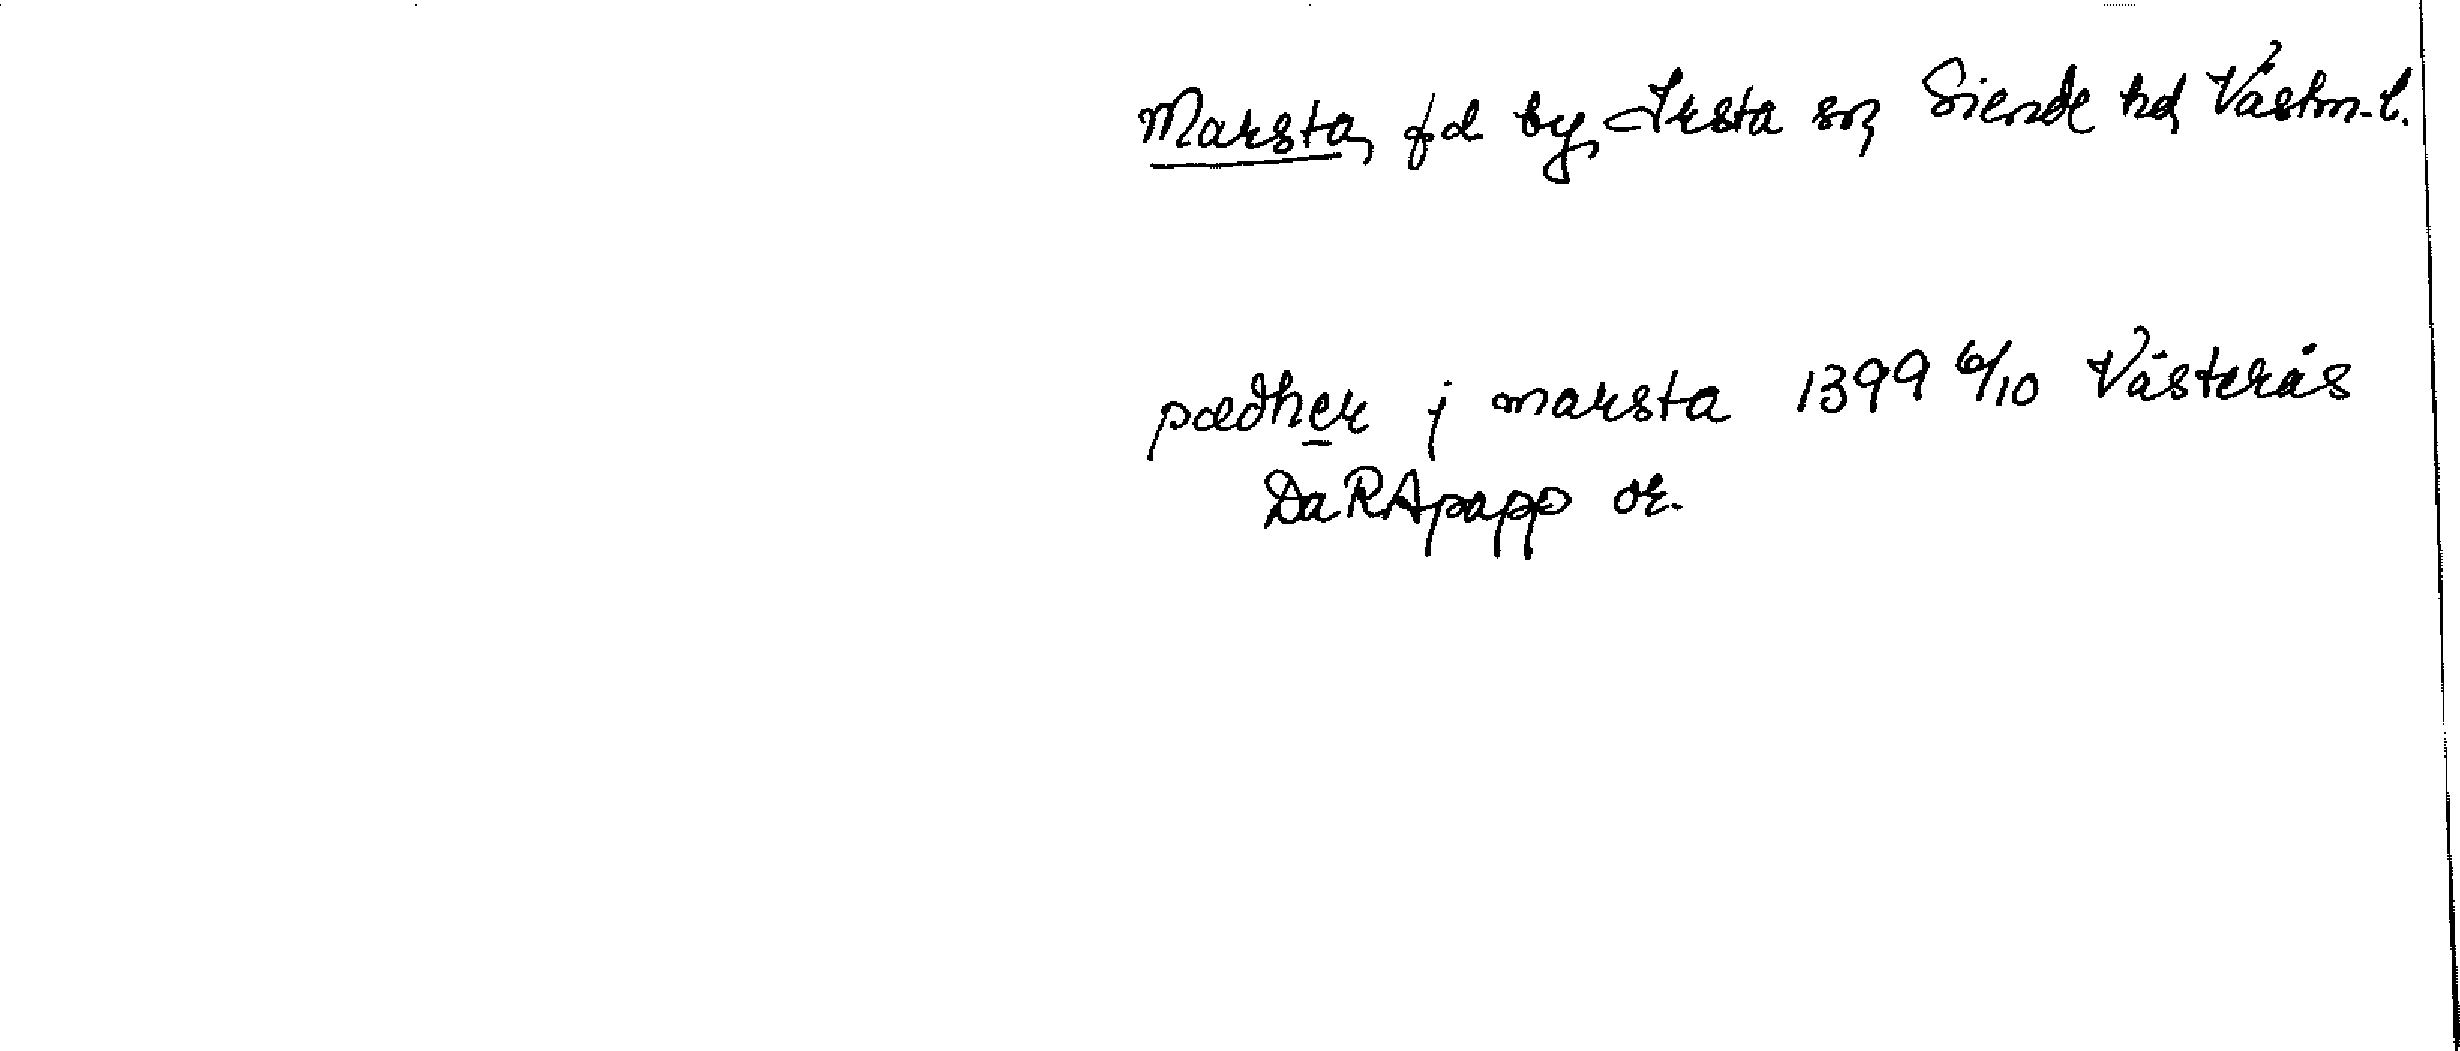 Marsta, fd by, Irsta sn, Siende hd, Västm. l.
pædher j marsta 1399 6/10 Västerås
DaRApapp or.